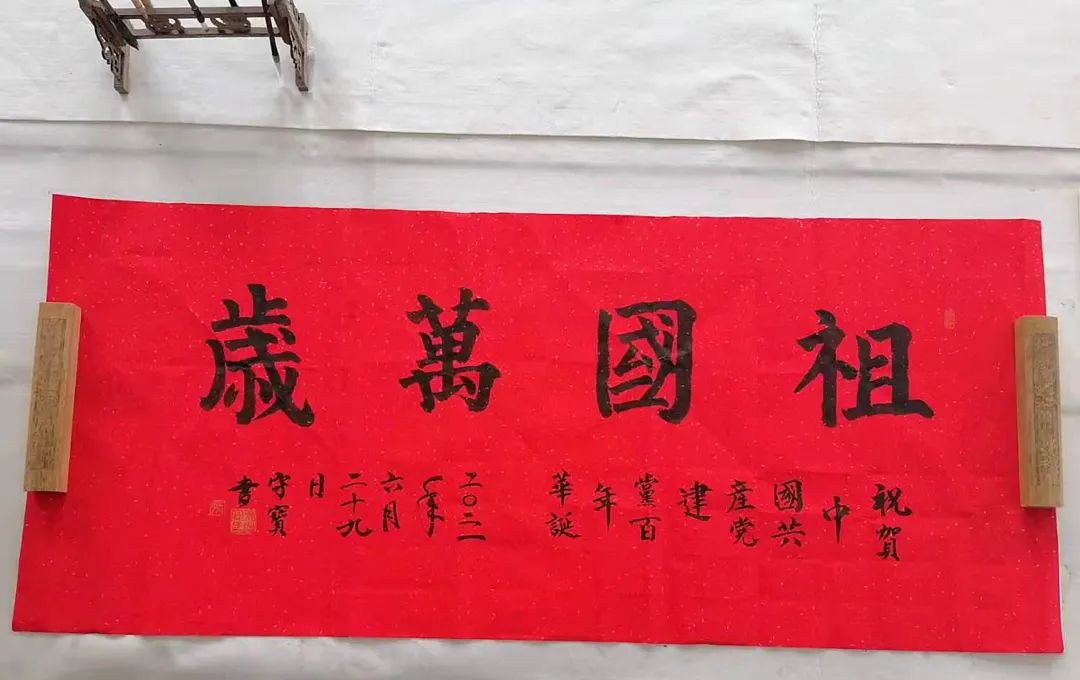 祖國萬歳
祝賀
中
國共
産党
建
黨百
年
華誕
二〇二
一年
六月
二十九
日
守寶
書